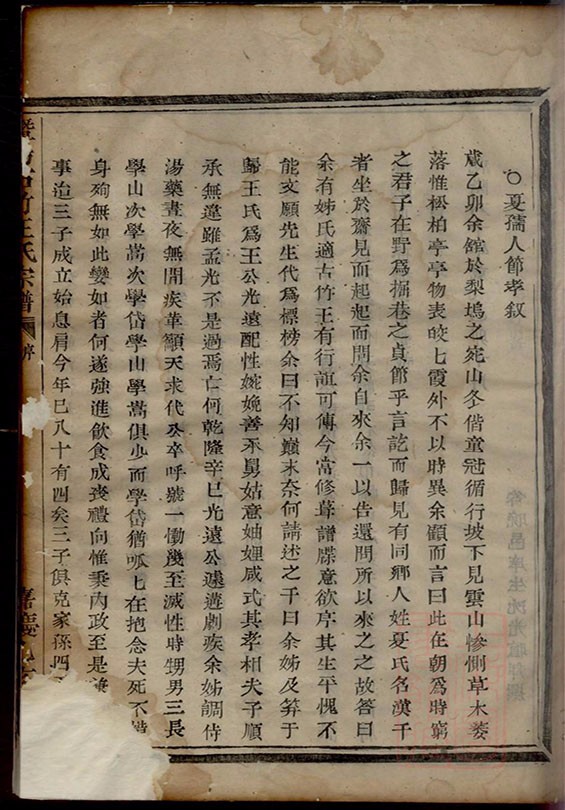 ○夏孺人節孝叙
歲乙卯余館於梨塢之兊山冬偕童冠循行坡下見雲山慘惻草木萎
落惟松柏亭亭物表皎皎霞外不以時異余顧而言曰此在朝爲時窮
之君子在野爲掘巷之貞節乎言訖而歸見有同鄉人姓夏氏名漢千
者坐於齋見而起起而問余自來余一以告還問所以來之之故答曰
余有姊氏適古竹王有行誼可傳今當修葺譜牒意欲序其生平愧不
能文願先生代爲標榜余曰不知巔末奈何請述之千曰余姊及筓于
歸王氏爲王公光遠配性婉娩善承舅姑意妯娌咸式其孝相夫子順
承無違雖孟光不是過焉亡何乾隆辛巳光遠公遽遘劇疾余姊調侍
湯藥晝夜無間疾革籲天求代公卒呼號一慟幾至滅性時甥男三長
學山次學嵩次學岱學山學嵩俱少而學岱猶呱匕在抱念夫死不惜
身殉無如此孌如者何遂強進飲食成喪禮向惟秉內政至是
事迨三子成立始息肩今年已八十有四矣三子俱克家孫四
古竹王氏宗譜
序
嘉慶